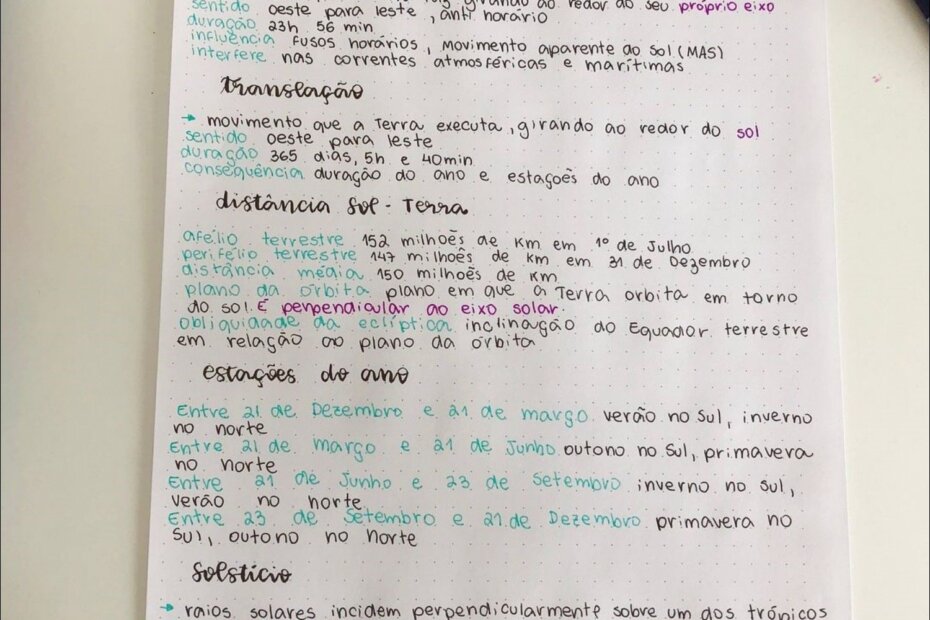 girando ao redor do seu próprio eixo
sentido oeste para leste, anti horário
duração 23h 56 min
influência fusos horários, movimento aparente do sol (MAS)
interfere nas correntes atmosféricas e marítimas
translação
→ movimento que a Terra executa, girando ao redor do sol
sentido oeste para leste
duração 365 dias, 5h e 40min
consequência duração do ano e estações do ano
distância Sol - Terra
afélio terrestre 152 milhões de Km em 1º de Julho
periélio terrestre 147 milhões de Km em 31 de Dezembro
distância média 150 milhões de Km
plano da órbita plano em que a Terra orbita em torno
do sol. É perpendicular ao eixo solar.
obliquidade da eclíptica inclinação do Equador terrestre
em relação ao plano da órbita
estações do ano
Entre 21 de Dezembro e 21 de março verão no Sul, inverno
no norte
Entre 21 de março e 21 de Junho outono no Sul, primavera
no norte
Entre 21 de Junho e 23 de Setembro inverno no Sul,
verão no norte
Entre 23 de Setembro e 21 de Dezembro primavera no
Sul, outono no norte
Solstício
→ raios solares incidem perpendicularmente sobre um dos trópicos